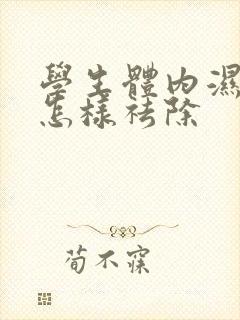 學生體內濕
怎樣祛除
荀不寐